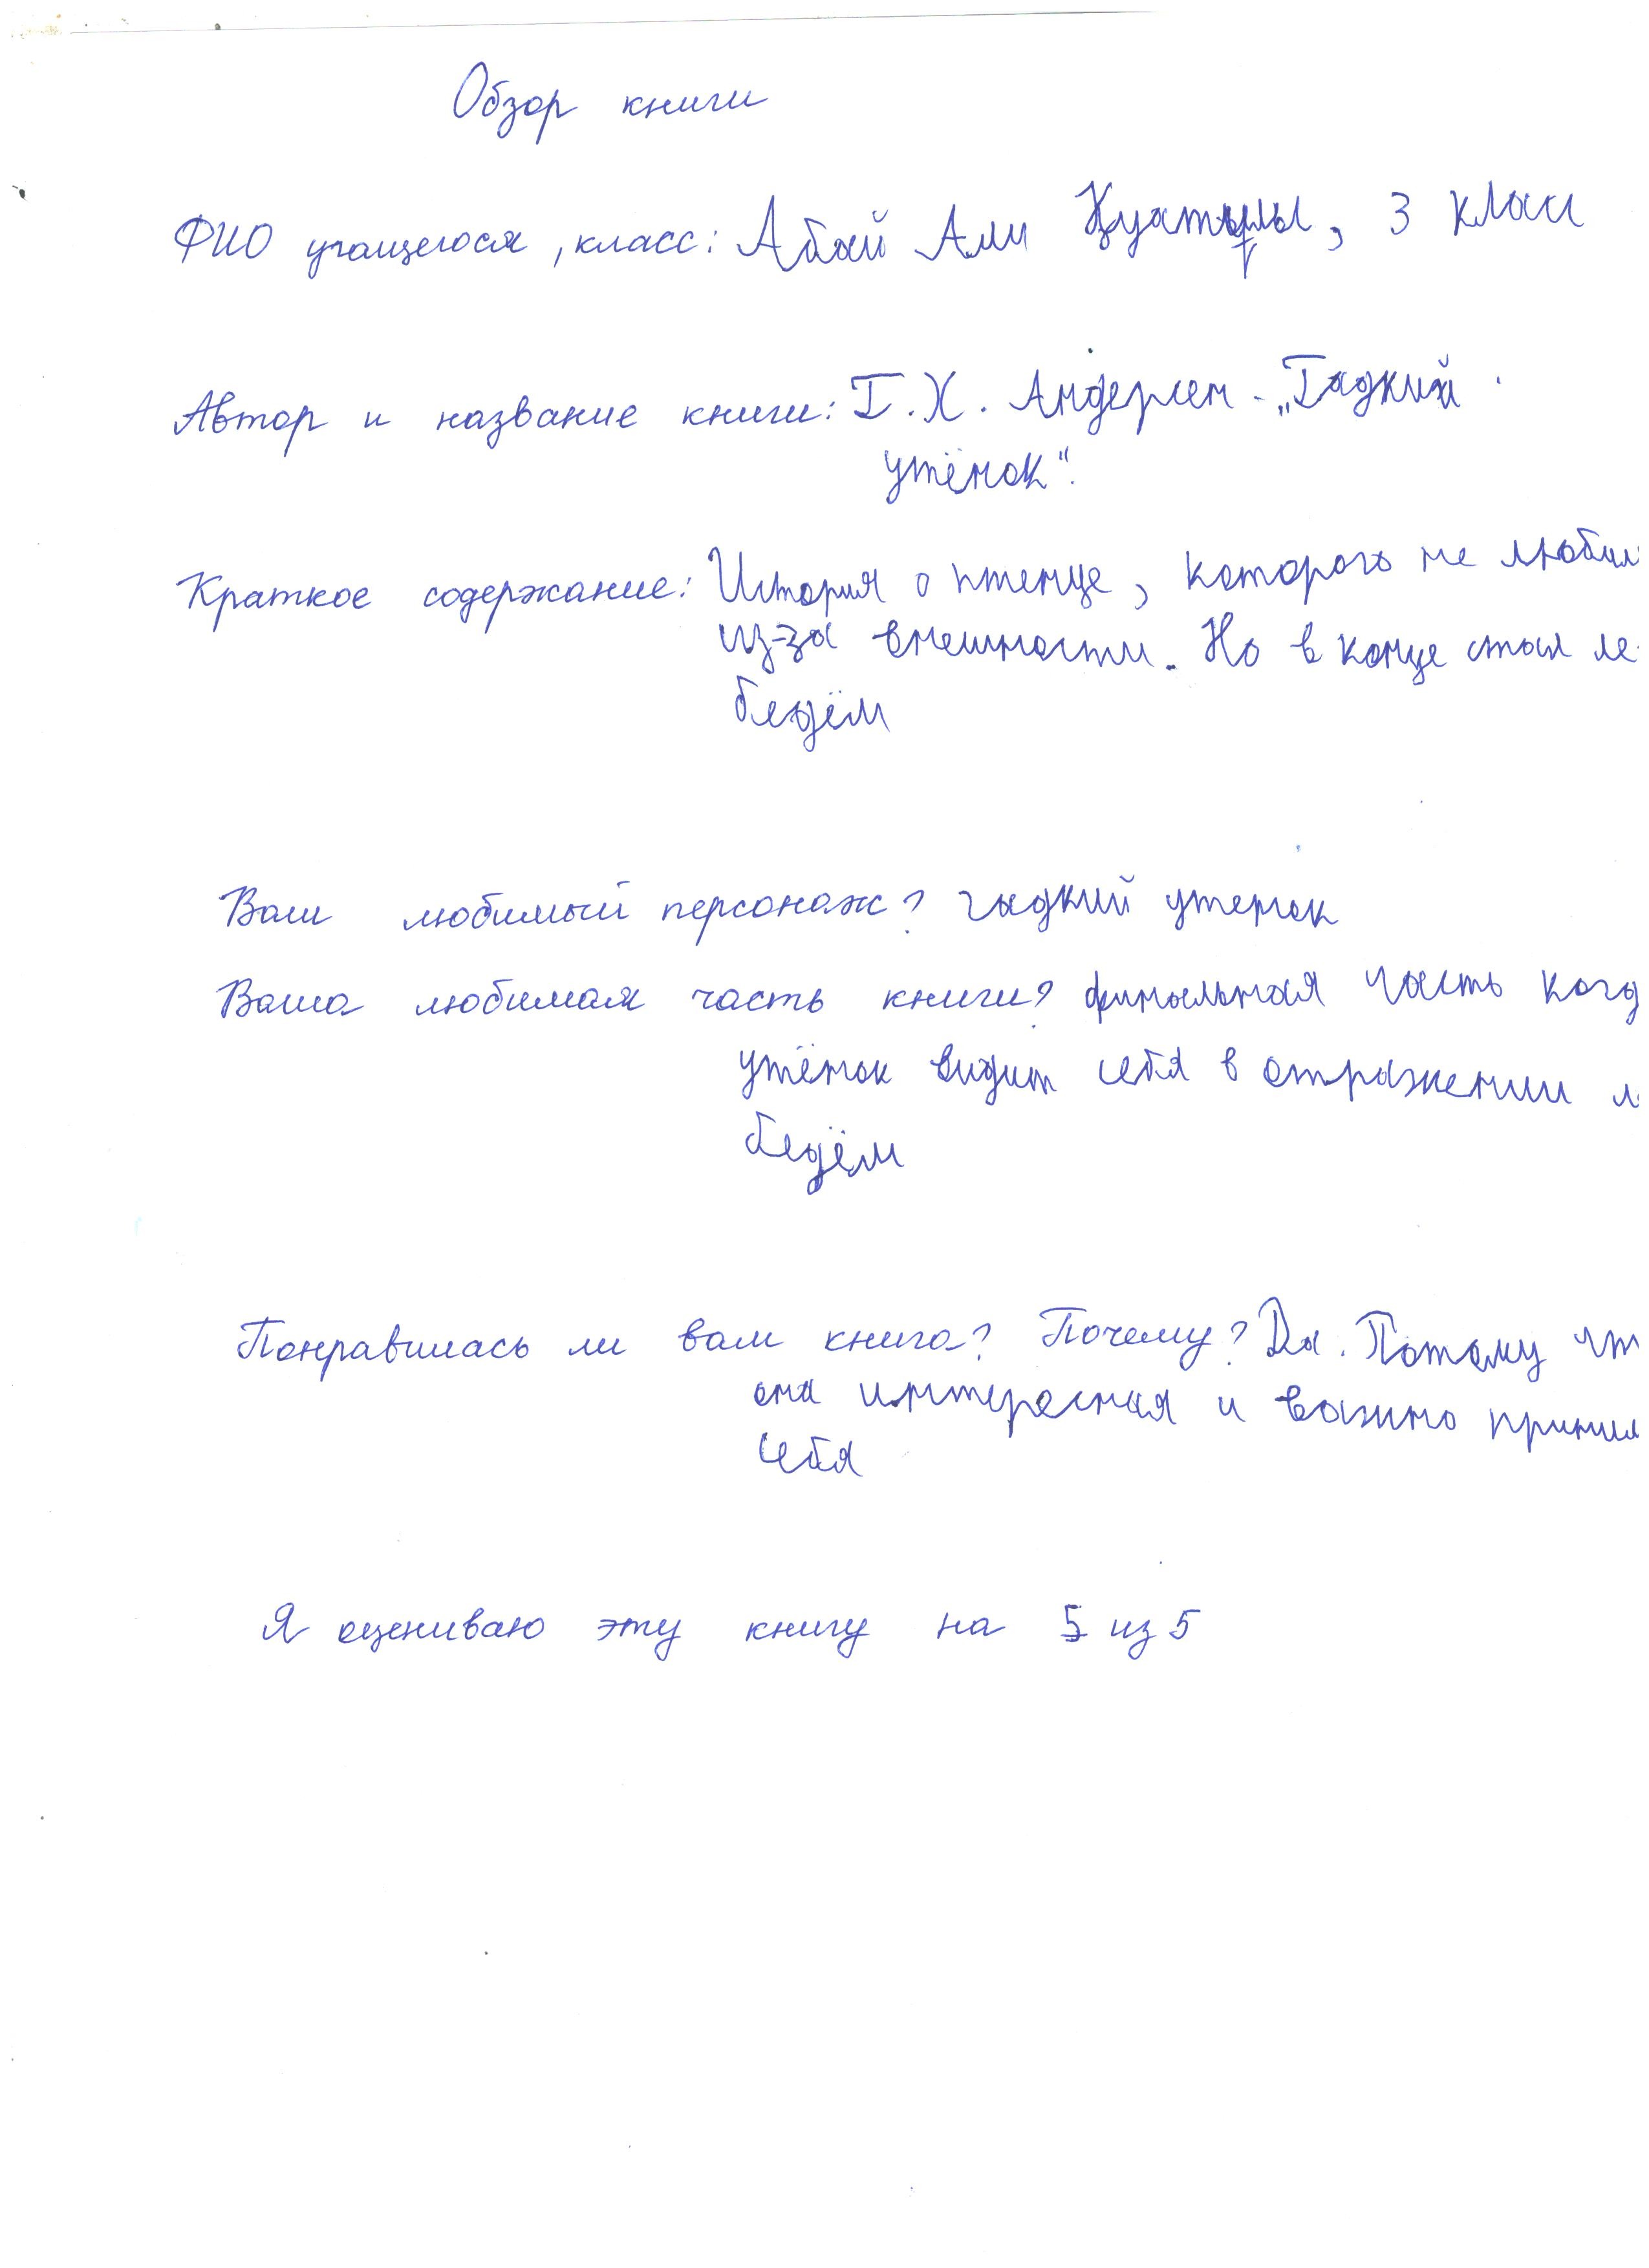 Обзор книги
ФИО учащегося, класс: Абай Али 3 класс
Автор и название книги: Г.Х. Андерсен - „Гадкий
утёнок".
Краткое содержание: История о птенце, которого не любил
из-за внешности. Но в конце стал ле-
бедём
Ваш любимый персонаж? гадкий утенок
Ваша любимая часть книги? финальная часть когд
утёнок видит себя в отражении
бедём
Понравилась ли вам книга? Почему? Да. Потому чт
она интересная и важно
себя
Я оцениваю эту книгу на 5 из 5